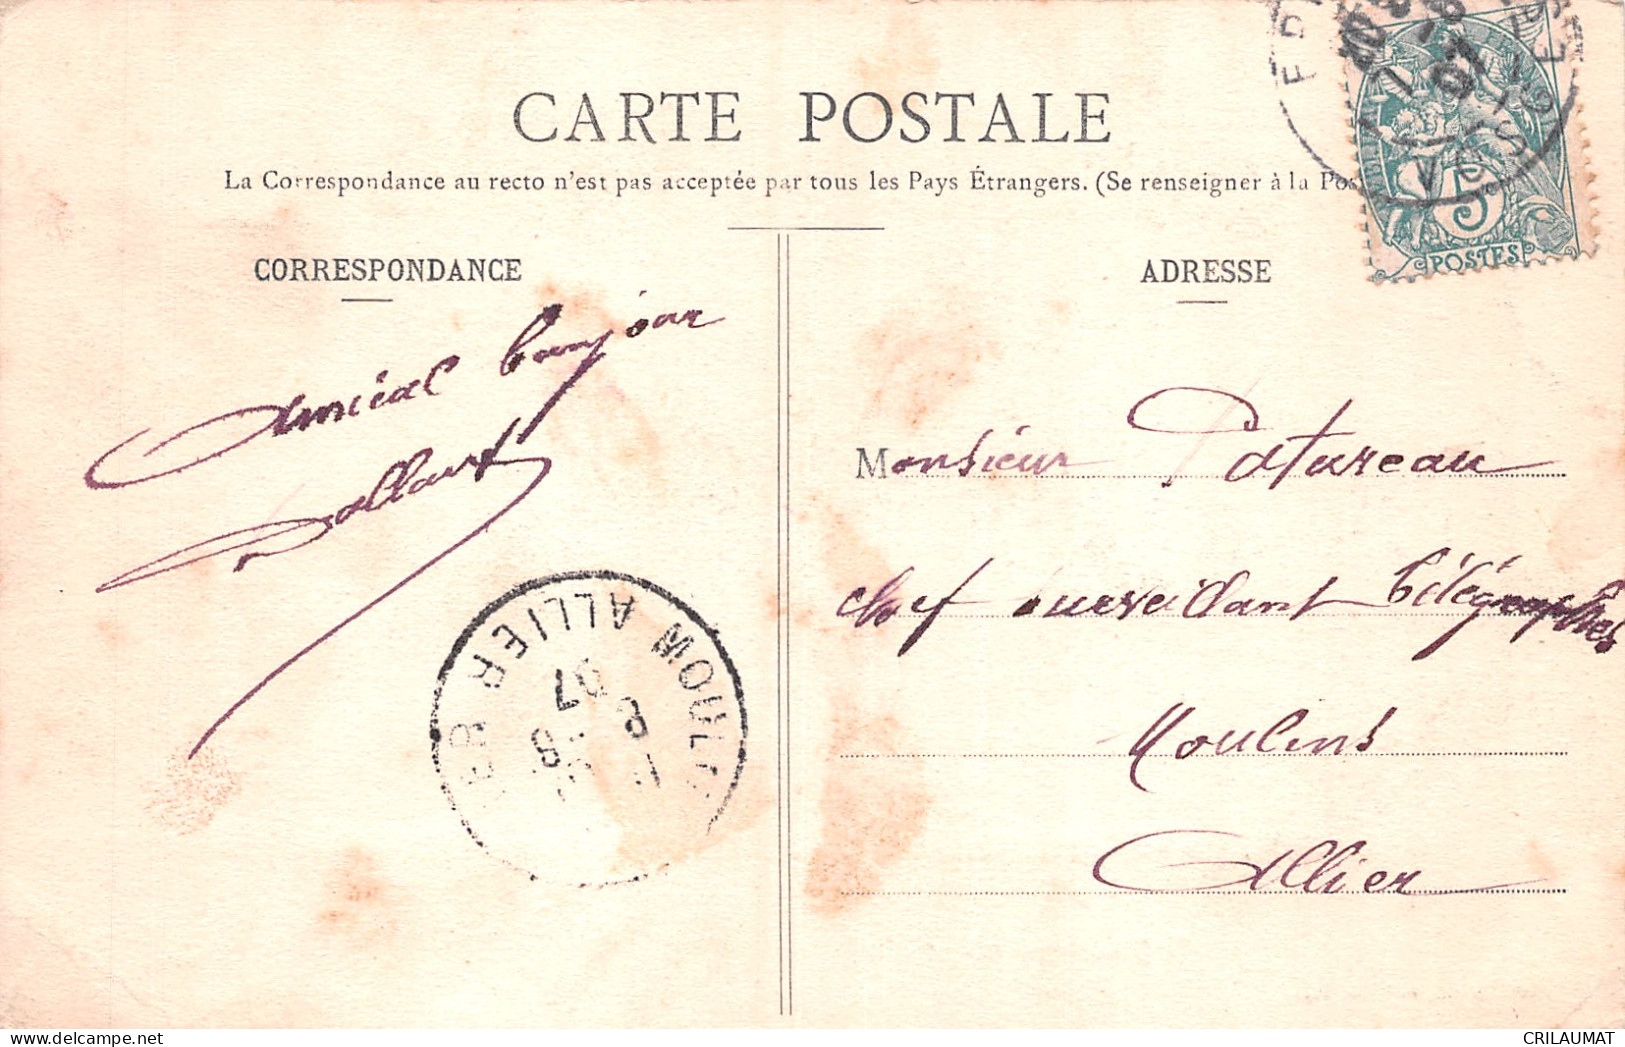 CARTE POSTALE
La Correspondance au recto n'est pas acceptée par tous les Pays Étrangers. (Se renseigner à la Pos
CORRESPONDANCE
ADRESSE
5
POSTES
VOSGES
Amical bonjour
Monsieur Patureau
chef surveillant télégraphes
Moulins
Allier
MOULINS ALLIER
8
07
CRILAUMAT